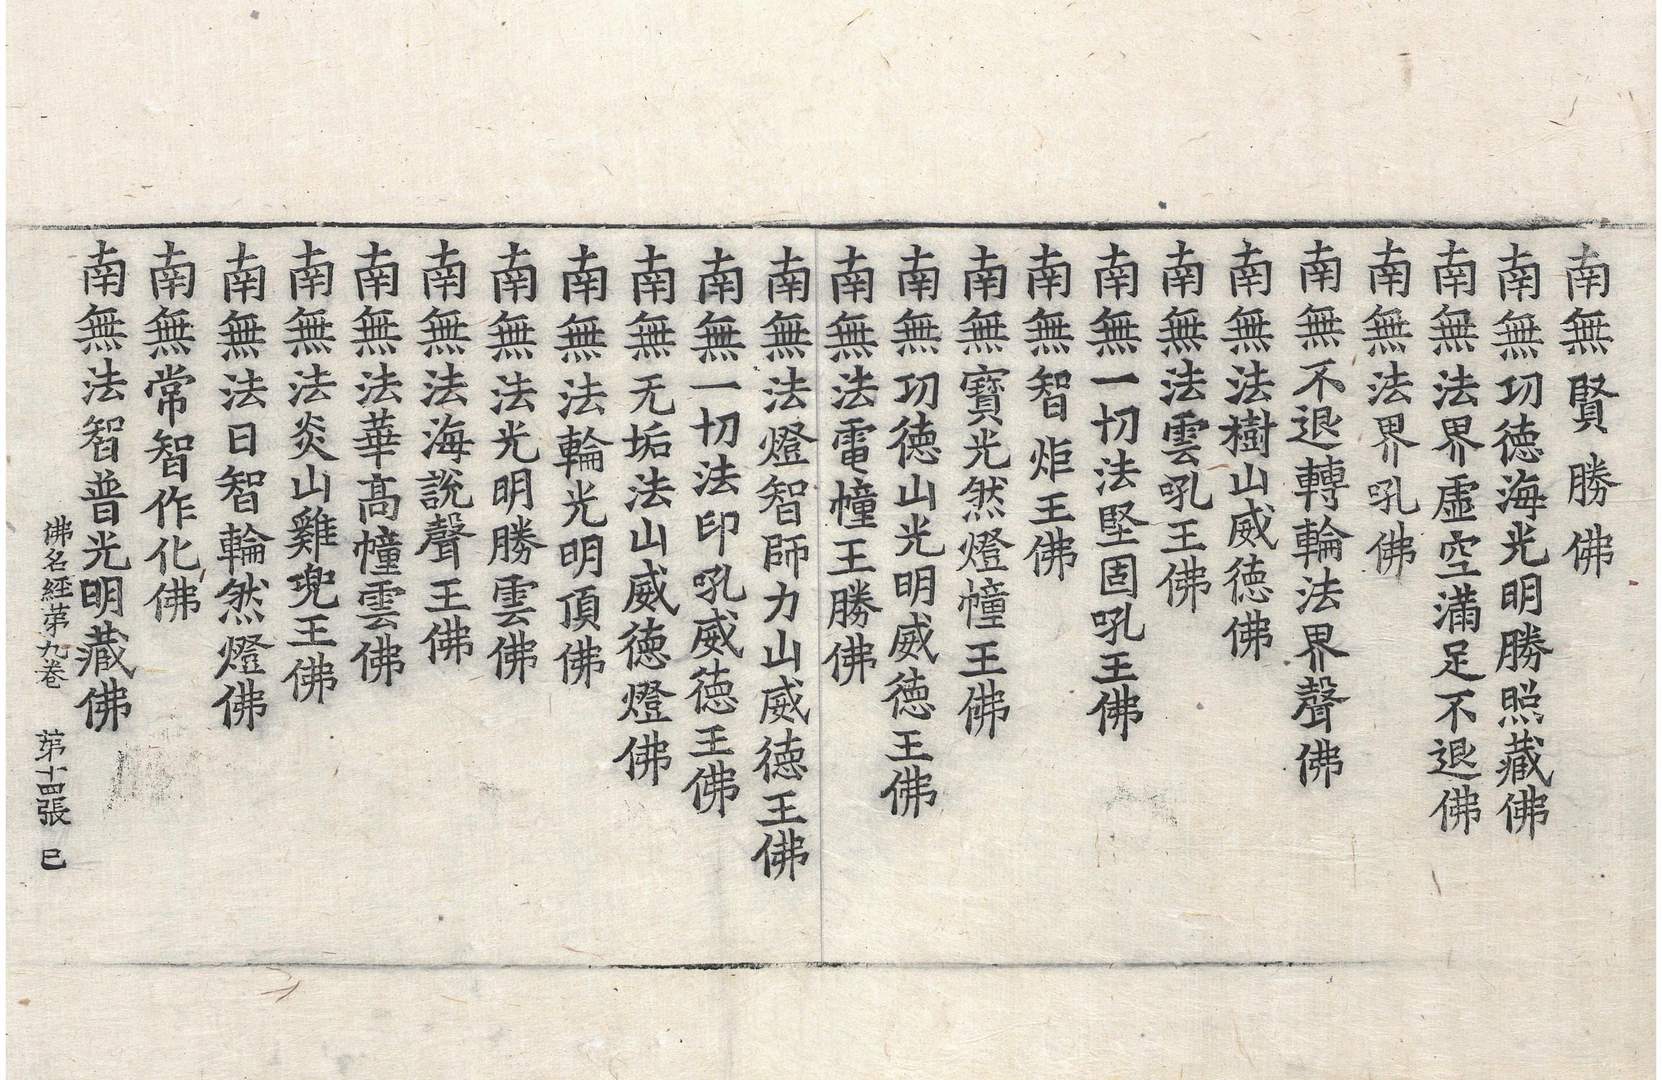 南無賢勝佛
南無功德海光明勝照藏佛
南無法界虛空滿足不退佛
南無法界吼佛
南無不退轉輪法界聲佛
南無法樹山威德佛
南無法雲吼王佛
南無一切法堅固吼王佛
南無智炬王佛
南無寶光然燈幢王佛
南無功德山光明威德王佛
南無法電幢王勝佛
南無法燈智師力山威德王佛
南無一切法印吼威德王佛
南無无垢法山威德燈佛
南無法輪光明頂佛
南無法光明勝雲佛
南無法海說聲王佛
南無法華高幢雲佛
南無法炎山雞兜王佛
南無法日智輪然燈佛
南無常智作化佛
南無法智普光明藏佛
佛名經第九卷 第十四張 巳